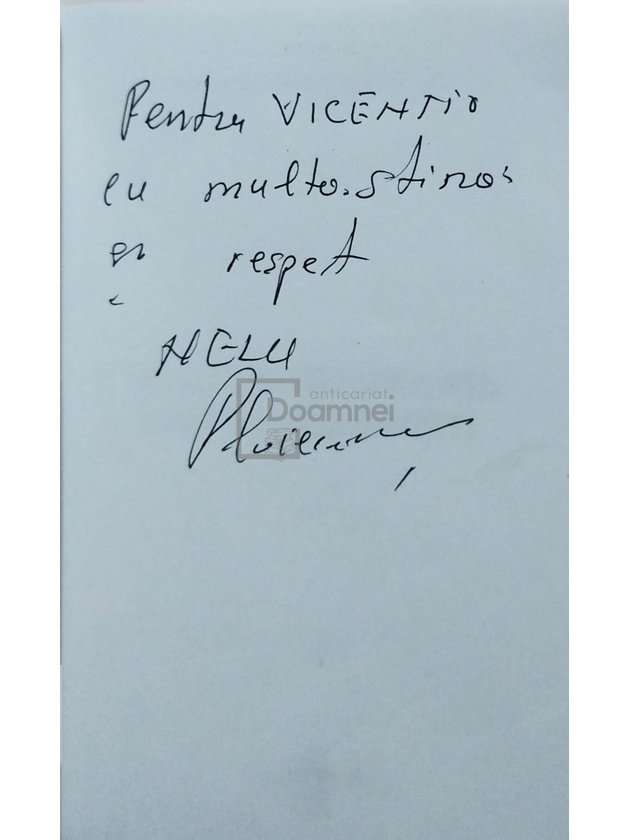 Pentru VICENTIO
cu multa stima
și respect
NELU
Ploieșteanu
anticariat
Doamnei